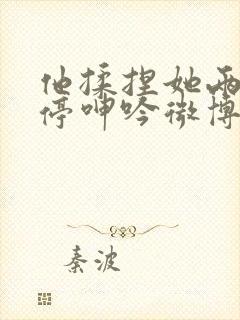 他揉捏她两
停呻吟微博
秦波